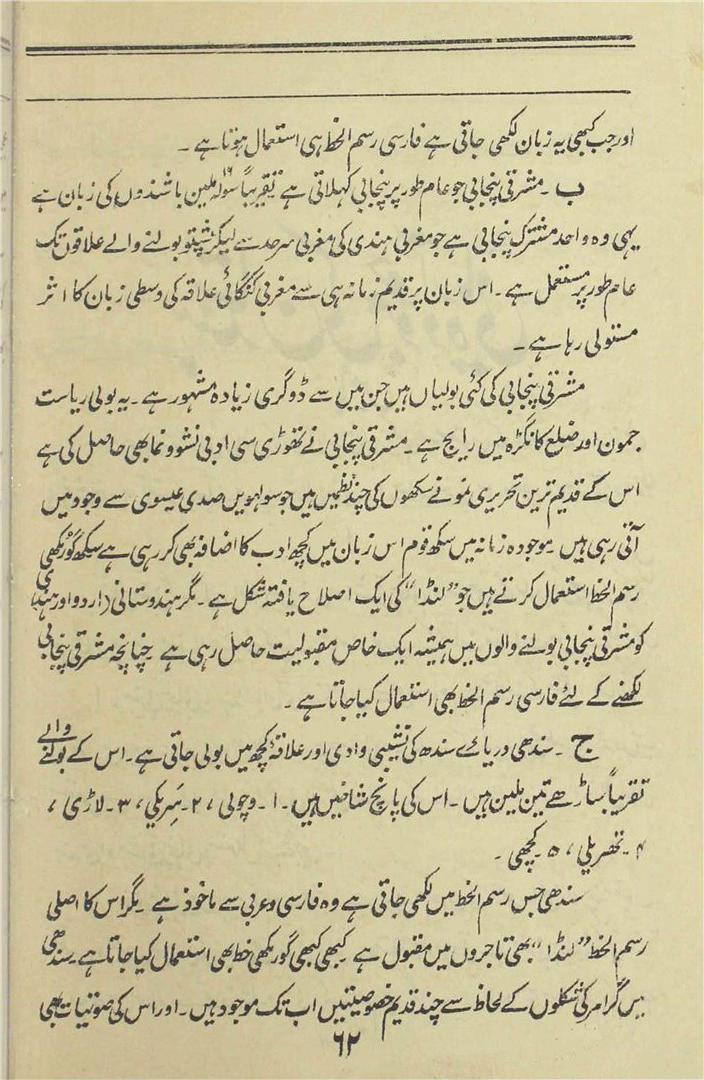 اور جب کبھی یہ زبان لکھی جاتی ہے فارسی رسم الخط ہی استعمال ہوتا ہے ۔
ب ۔ مشرقی پنجابی جو عام طور پر پنجابی کہلاتی ہے تقریباً سولہ۱۶ ملین باشندوں کی زبان ہے
یہی وہ واحد مشترک پنجابی ہے جو مغربی ہندی کی مغربی سرحد سے لیکر پشتو بولنے والے علاقوں تک
عام طور پر مستعمل ہے ۔ اس زبان پر قدیم زمانہ ہی سے مغربی گنگائی علاقہ کی وسطی زبان کا اثر
مستولی رہا ہے ۔
مشرقی پنجابی کی کئی بولیاں ہیں جن میں سے ڈوگری زیادہ مشہور ہے ۔ یہ بولی ریاست
جموں اور ضلع کانگڑہ میں رایج ہے ۔ مشرقی پنجابی نے تھوڑی سی ادبی نشو و نما بھی حاصل کی ہے
اس کے قدیم ترین تحریری نمونے سکھوں کی چند نظمیں ہیں جو سولہویں صدی عیسوی سے وجود میں
آتی رہی ہیں ۔ موجودہ زمانہ میں سکھ قوم اس زبان میں کچھ ادب کا اضافہ بھی کر رہی ہے سکھ گورمکھی
رسم الخط استعمال کرتے ہیں جو ”لنڈا“ کی ایک اصلاح یافتہ شکل ہے ۔ مگر ہندوستانی (اردو اور ہندی)
کو مشرقی پنجابی بولنے والوں میں ہمیشہ ایک خاص مقبولیت حاصل رہی ہے چنانچہ مشرقی پنجابی
لکھنے کے لئے فارسی رسم الخط بھی استعمال کیا جاتا ہے ۔
ج ۔ سندھی دریائے سندھ کی نشیبی وادی اور علاقۂ کچھ میں بولی جاتی ہے ۔ اس کے بولنے والے
تقریباً ساڑھے تین ملین ہیں ۔ اس کی پانچ شاخیں ہیں ۔ ۱ ۔ وچولی ، ۲ ۔ سَریکی ، ۳ ۔ لاڑی ،
۴ ۔ تھریلی ، ۵ ۔ کچھی ۔
سندھی جس رسم الخط میں لکھی جاتی ہے وہ فارسی و عربی سے ماخوذ ہے ۔ مگر اس کا اصلی
رسم الخط ”لنڈا“ بھی تاجروں میں مقبول ہے ۔ کبھی کبھی گورمکھی خط بھی استعمال کیا جاتا ہے ۔ سندھی
میں گرامر کی شکلوں کے لحاظ سے چند قدیم خصوصیتیں اب تک موجود ہیں ۔ اور اس کی صوتیات بھی
۶۲